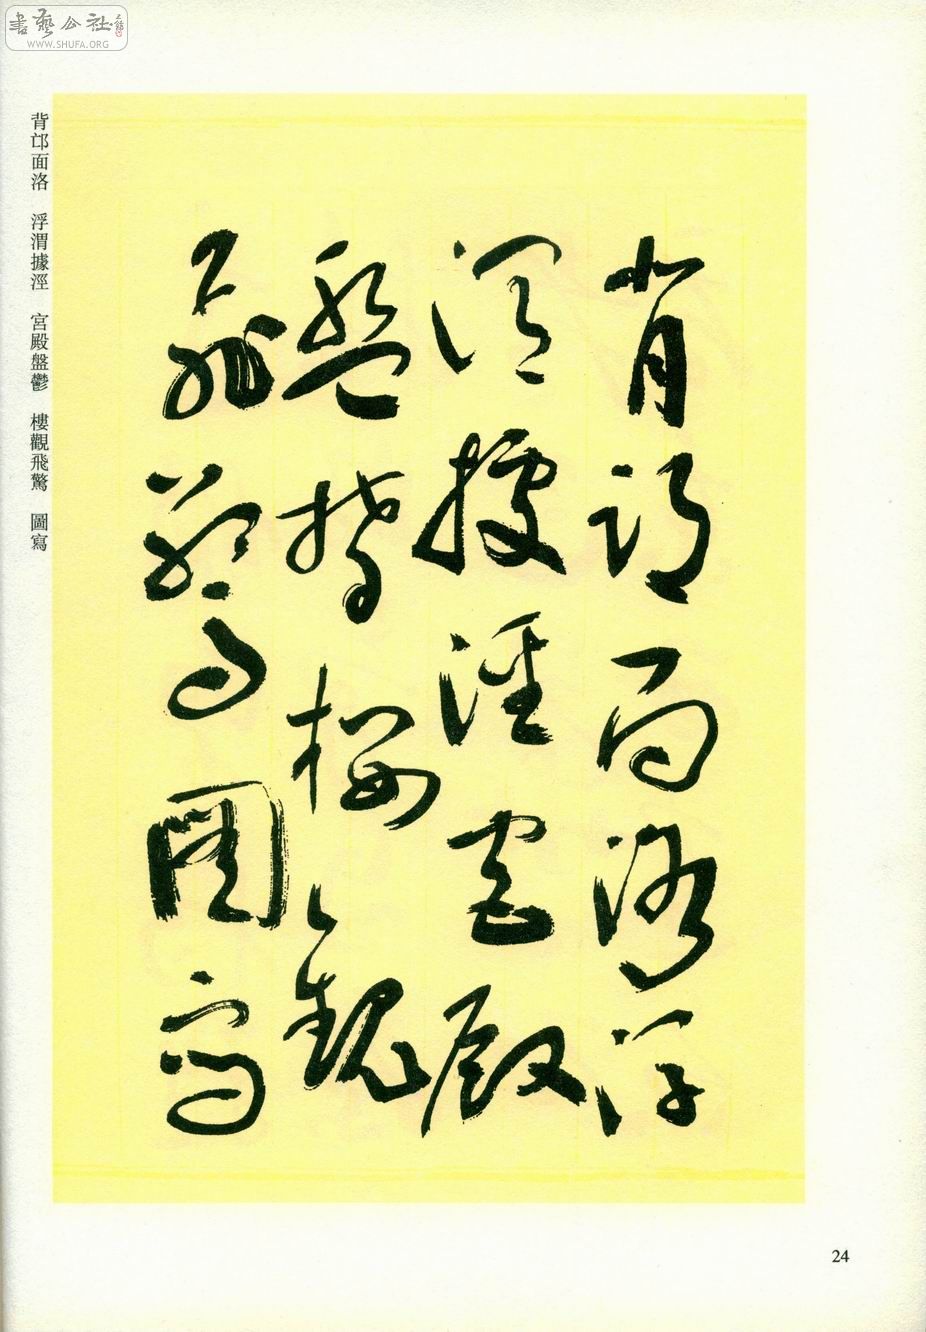 書藝公社
WWW.SHUFA.ORG
背邙面洛浮
渭據涇宮殿
盤鬱樓觀
飛驚圖寫
背邙面洛　浮渭據涇　宮殿盤鬱　樓觀飛驚　圖寫
24